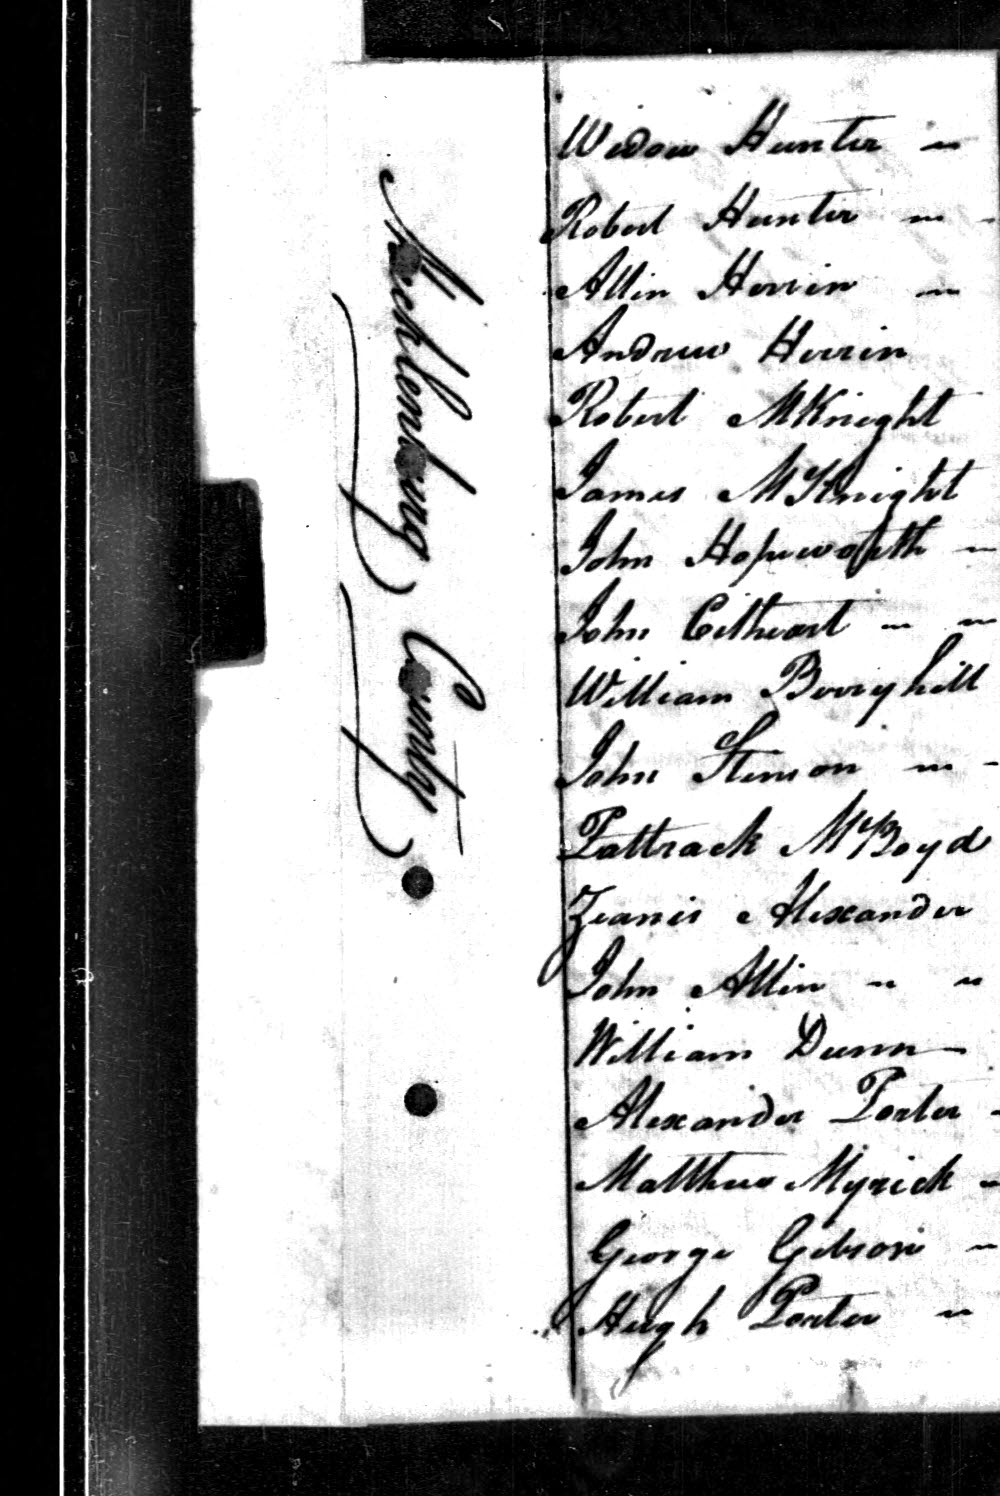 Mecklenburg County
Widow Hunter
Robert Hunter
Allin Herrin
Andrew Herrin
Robert McKnight
James McKnight
John Hopeworth
John Cithcart
William Berryhill
John Stenson
Pattrack McBoyd
Alexander
John Allin
William Dunn
Alexander Porter
Matthew Myrick
George Gibson
Hugh Porter